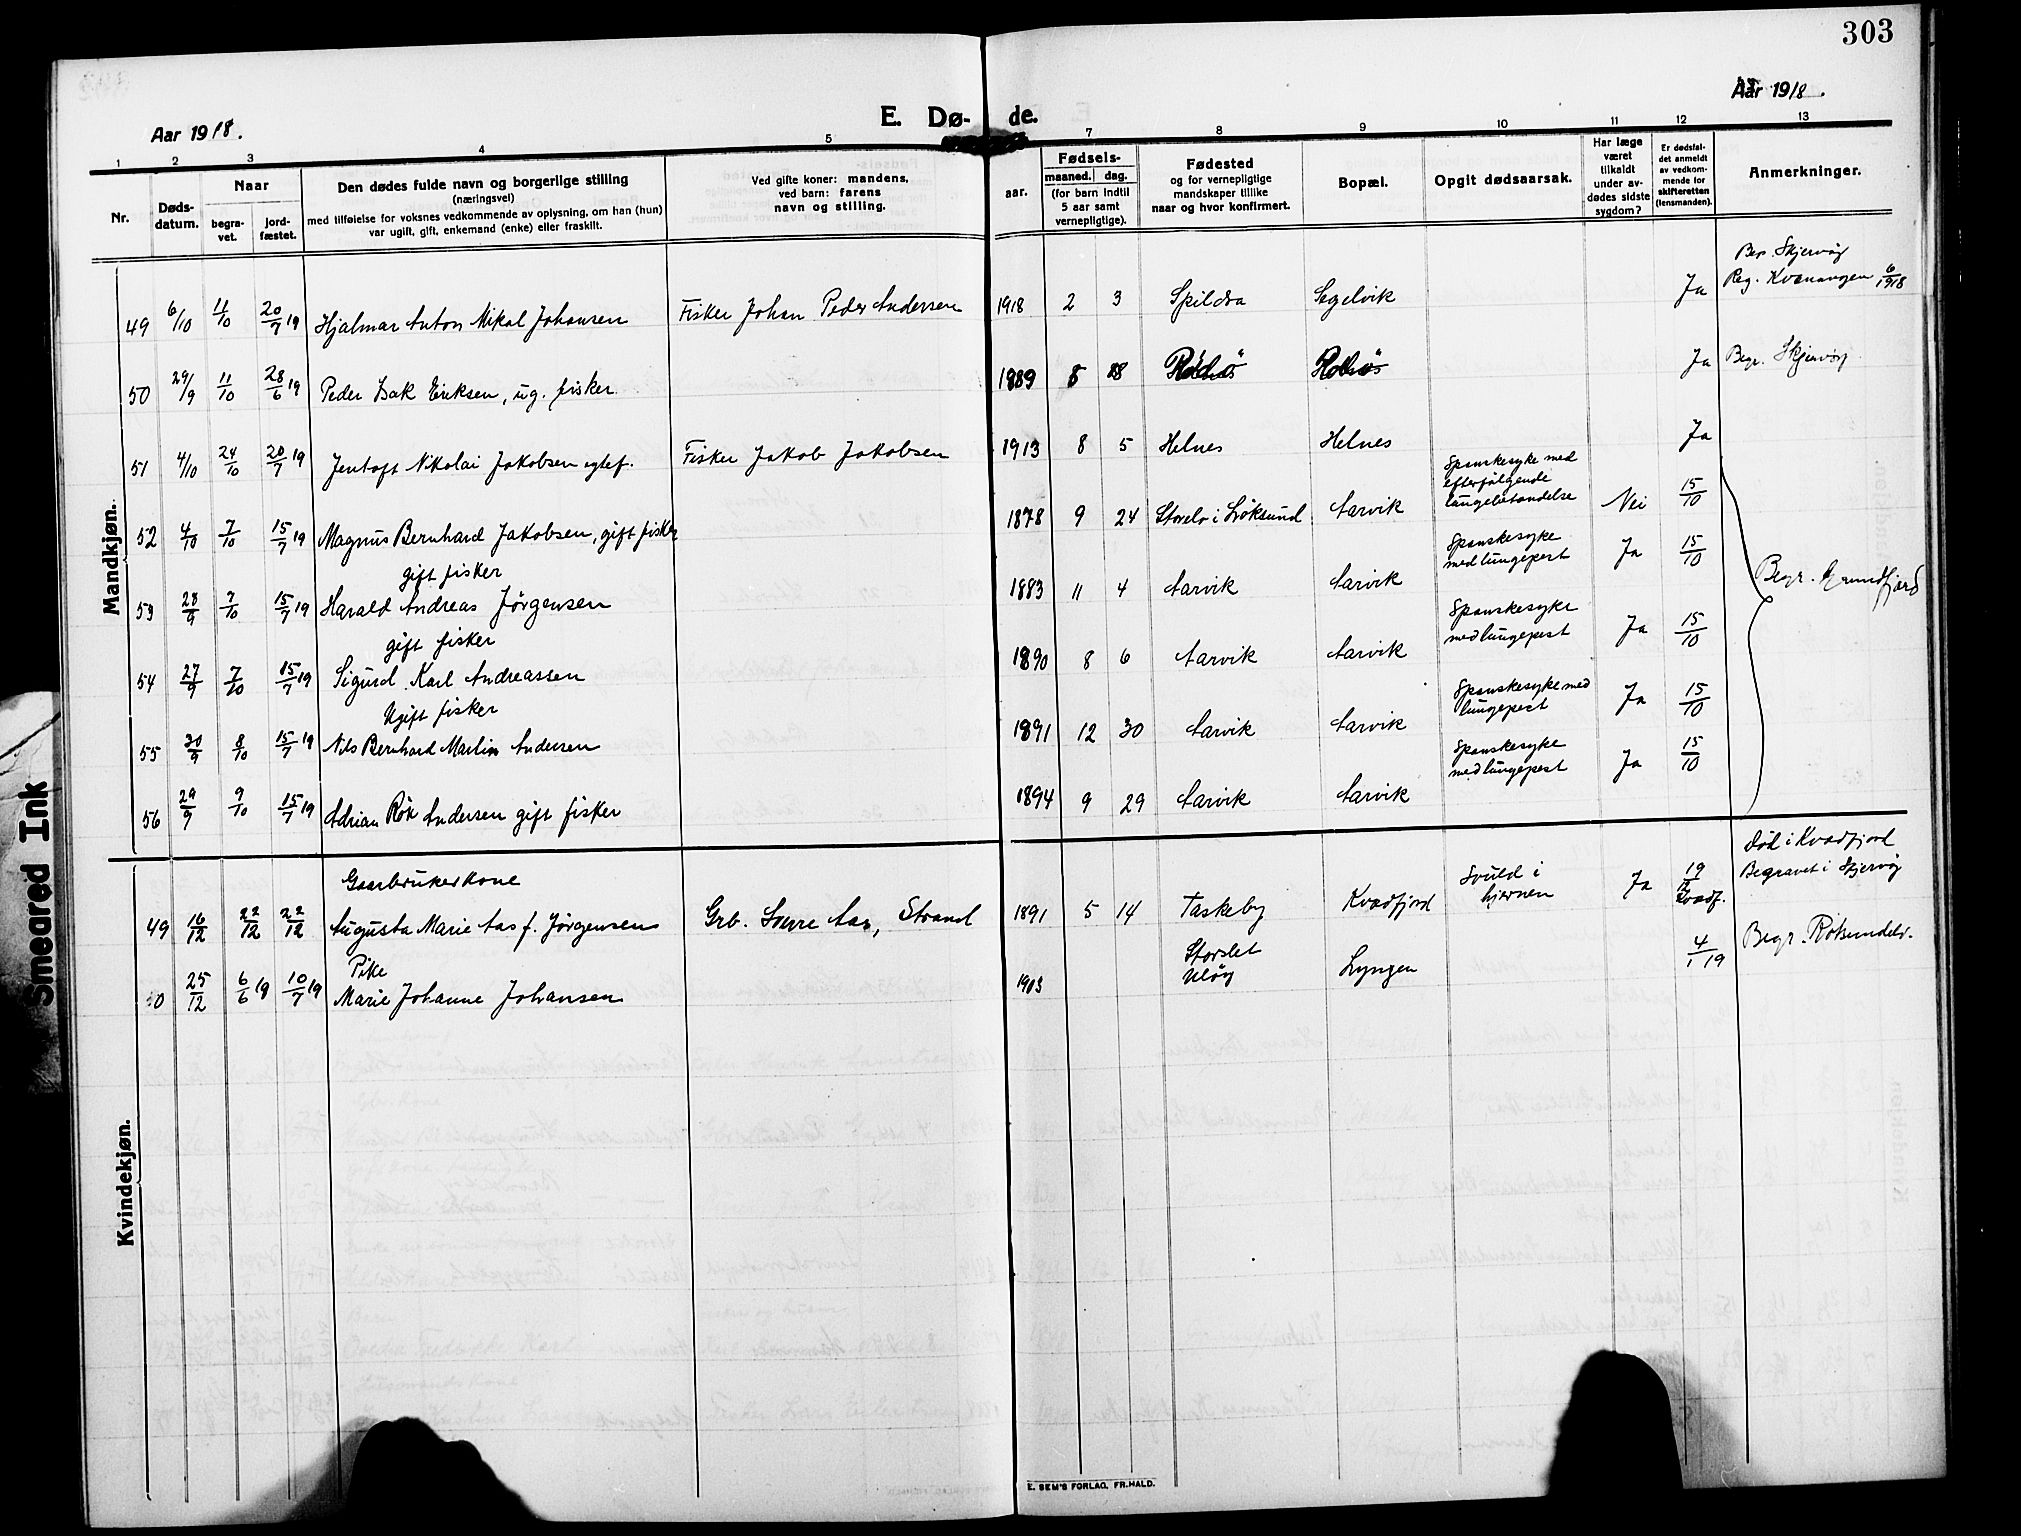 303
Aar 1918.
E. Dø- de.
Aar 1918.
1 2 3 4 5 7 8 9 10 11 12 13
Nr.
Døds-
datum.
Naar
begra-
vet.
jord-
fæstet.
Den dødes fulde navn og borgerlige stilling
(næringsvei)
med tilføielse for voksnes vedkommende av oplysning, om han (hun)
var ugift, gift, enkemand (enke) eller fraskilt.
Ved gifte koner: mandens,
ved barn: farens
navn og stilling.
aar.
Fødsels-
maaned. dag.
(for barn indtil
5 aar samt
vernepligtige).
Fødested
og for vernepligtige
mandskaper tillike
naar og hvor konfirmert.
Bopæl.
Opgit dødsaarsak.
Har læge
været
tilkaldt
under av-
dødes sidste
sygdom?
Er dødsfal-
det anmeldt
av vedkom-
mende for
skifteretten
(lensmanden).
Anmerkninger.
Mandkjøn.
49 6/10 11/10 20/7 19 Hjalmar Anton Nikal Johansen Fisker Johan Peder Andersen 1918 2 3 Spildra Segelvik Ja Beg. Skjervøy
Reg. Kvænangen 6/1918
50 29/9 11/10 28/6 19 Peder Isak Eriksen, ug. fisker. 1889 8 18 Ja Begr. Skjervøy
51 4/10 24/10 20/7 19 Jentoft Nikolai Jakobsen egtef. Fisker Jakob Jakobsen 1913 8 5 Helnes Helnes Ja
52 4/10 7/10 15/7 19 Magnus Bernhard Jakobsen, gift fisker 1878 9 24 i Løksund Aarvik Spanskesyke med
efterfølgende
lungebetændelse Nei 15/10
gift fisker
53 28/9 7/10 15/7 19 Harald Andreas Jørgensen 1883 11 4 Aarvik Aarvik Spanskesyke
med lungepest Ja 15/10 Begr. Grundfjord
gift fisker
54 27/9 7/10 15/7 19 Sigurd Karl Andreassen 1890 8 6 Aarvik Aarvik Spanskesyke
med lungepest Ja 15/10
Ugift fisker
55 30/9 8/10 15/7 19 Nils Bernhard Martin Andersen 1891 12 30 Aarvik Aarvik Spanskesyke med
lungepest Ja 15/10
56 29/9 9/10 15/7 19 Adrian Røk Andersen gift fisker 1894 9 29 Aarvik Aarvik Spanskesyke
med lungepest Ja 15/10
Kvindekjøn.
Gaarbrukerkone
49 16/12 22/12 22/12 Augusta Marie Aas f. Jørgensen Grb. Sverre Aas, Strand 1891 5 14 Taskeby Kvædfjord Svuld i
hjernen Ja 19/12
Kvædf. Død i Kvædfjord
Begravet i Skjervøy
Pike
50 25/12 6/6 19 10/7 19 Marie Johanne Johansen 1903 Storslet
Uløy Lyngen 4/1 19 Begr. Rotsundelv.
E. SEM'S FORLAG, FR.HALD.
Smeared Ink